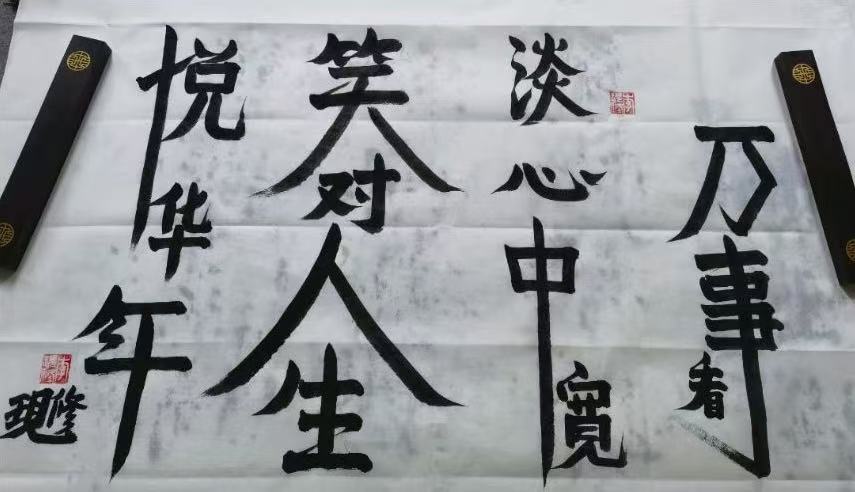 万事看
淡心中宽
笑对人生
悦华年
修现